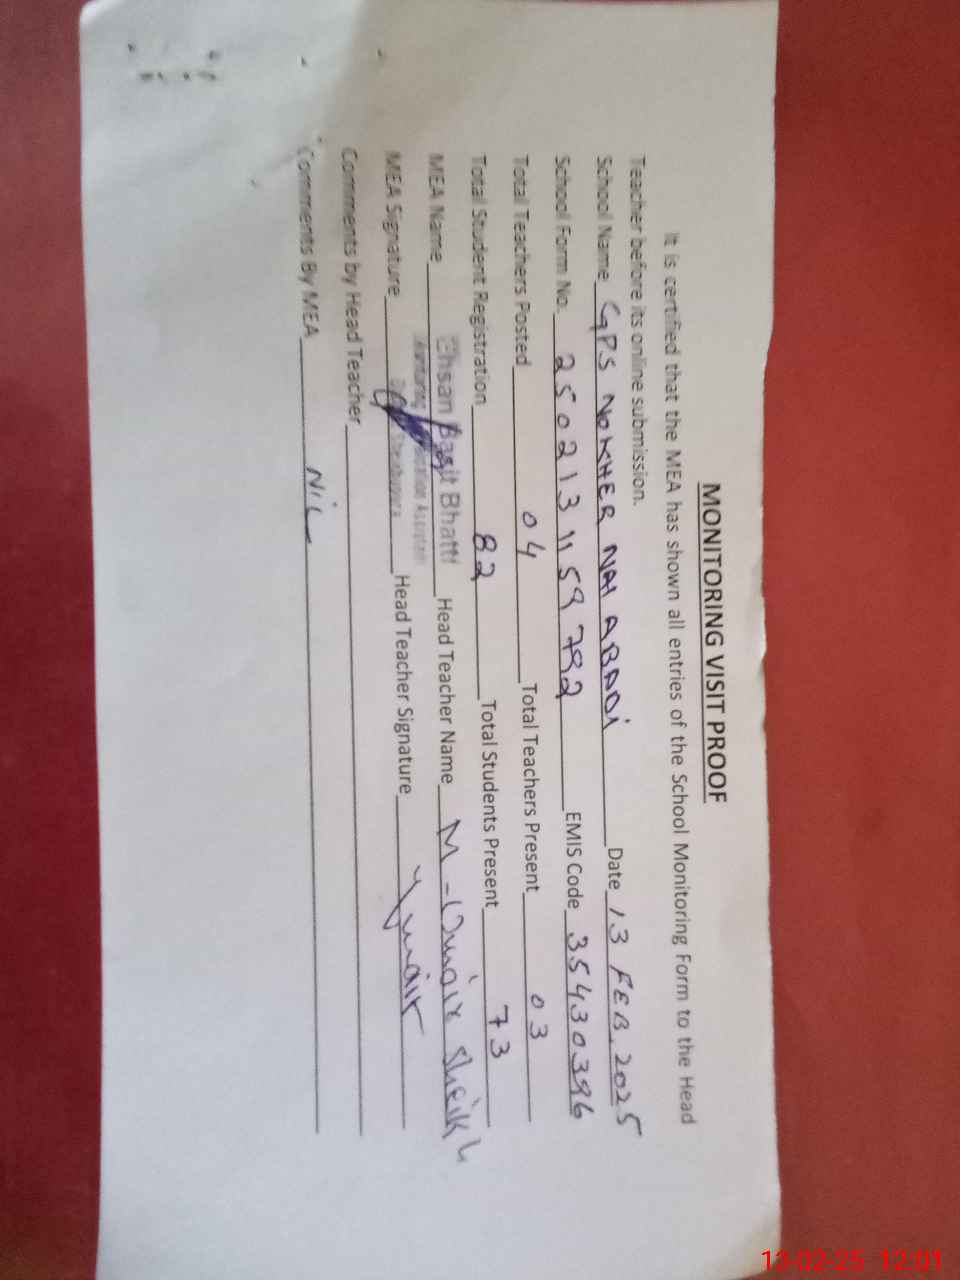 MONITORING VISIT PROOF
It is certified that the MEA has shown all entries of the School Monitoring Form to the Head
Teacher before its online submission.
School Name GPS NOKHER NAI ABADI Date 13 FEB. 2025
School Form No. 2502131159782 EMIS Code 35430396
Total Teachers Posted 04 Total Teachers Present 03
Total Student Registration 82 Total Students Present 73
MEA Name Ehsan Basit Bhatti Head Teacher Name M-Umair Sheikh
MEA Signature Head Teacher Signature Umair
Comments by Head Teacher
Comments By MEA NiL
13-02-25 12:01